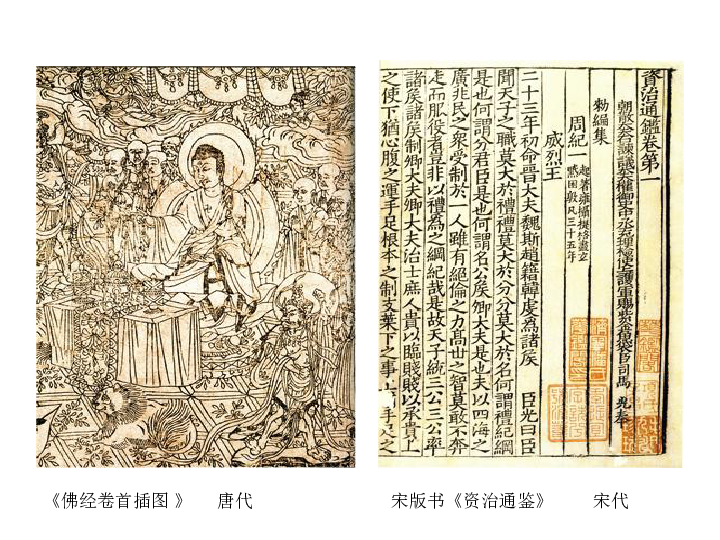 資治通鑑卷第一
朝散大夫諫議大夫權御史中丞充理檢使上護軍賜紫金魚袋臣司馬 光奉
勑編集
周紀一 起著雍攝提格盡玄
黓困敦凡三十五年
威烈王
二十三年初命晉大夫魏斯趙籍韓虔為諸矦 臣光曰臣
聞天子之職莫大於禮禮莫大於分分莫大於名何謂禮紀綱
是也何謂分君臣是也何謂名公矦卿大夫是也夫以四海之
廣兆民之衆受制於一人雖有絕倫之力高世之智莫敢不奔
走而服役者豈非以禮為之綱紀哉是故天子統三公三公率
諸矦諸矦制卿大夫卿大夫治士庶人貴以臨賤賤以承貴上
之使下猶心腹之運手足根本之制支葉下之事上 手足之
《佛经卷首插图 》 唐代
宋版书《资治通鉴》 宋代